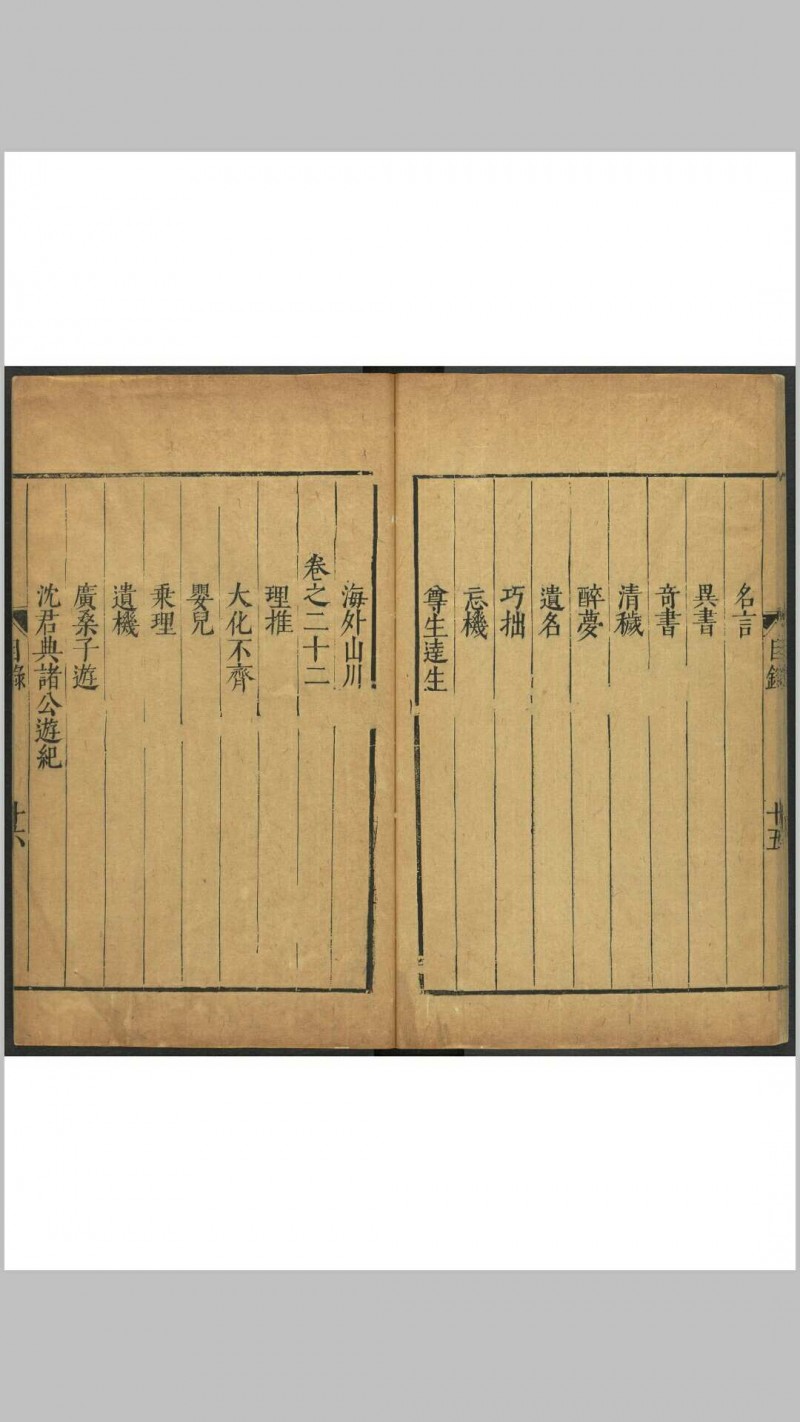 目錄
十五
名言
異書
奇書
清穢
醉夢
遺名
巧拙
忘機
尊生達生
海外山川
卷之二十二
理推
大化不齊
嬰兒
乘理
遺機
廣桑子遊
沈君典諸公遊紀
目錄
十六